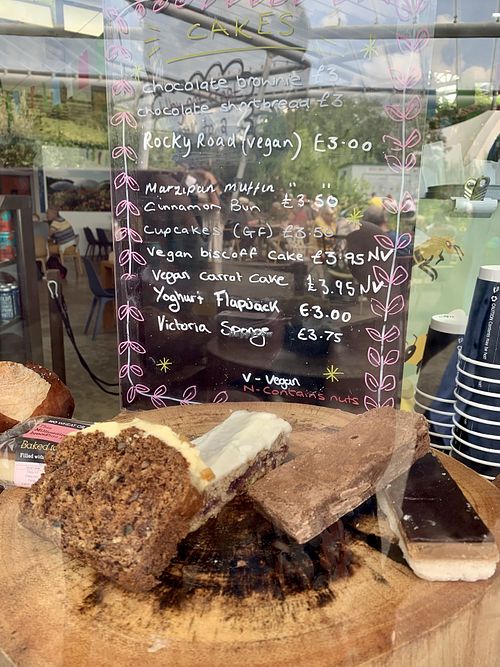 CAKES
chocolate brownie £3
chocolate shortbread £3
Rocky Road (vegan) £3.00
Marzipan muffin " "
Cinnamon Bun £3.50
Cupcakes (GF) £3.50
Vegan biscoff cake £3.95 NV
Vegan carrot cake £3.95 NV
Yoghurt Flapjack £3.00
Victoria Sponge £3.75
V - Vegan
N - Contains nuts
Baked
Filled with